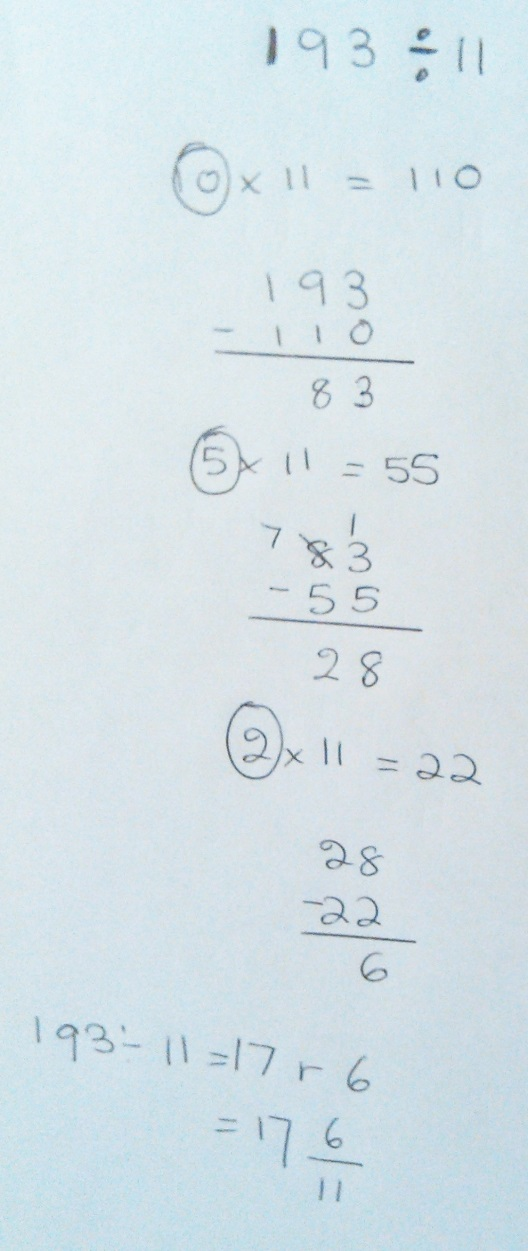 193 ÷ 11
10 × 11 = 110
193
- 110
83
5 × 11 = 55
7 8 ¹3
- 55
28
2 × 11 = 22
28
- 22
6
193 ÷ 11 = 17 r 6
= 17 6/11